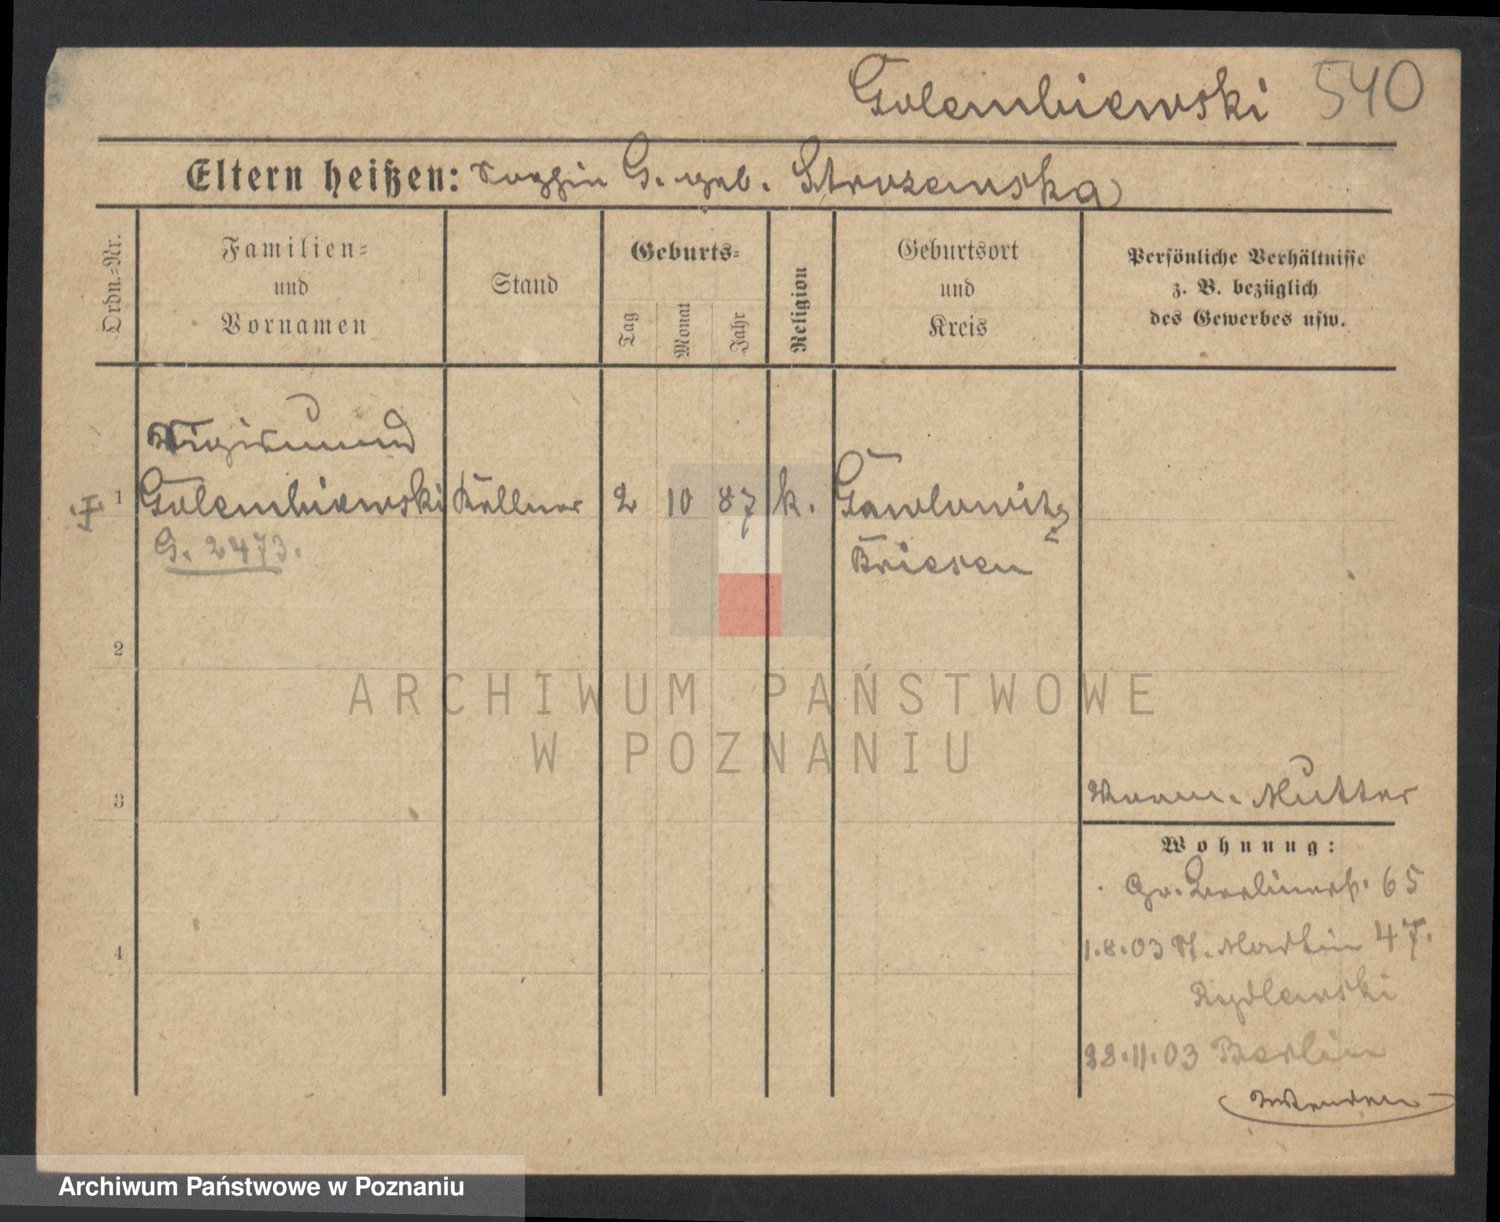 Golembiewski 540
Eltern heißen: Sophie G. geb. Strozewska
Ordn.=Nr.
Familien=
und
Vornamen
Stand
Geburts=
Tag
Monat
Jahr
Religion
Geburtsort
und
Kreis
Persönliche Verhältnisse
z. B. bezüglich
des Gewerbes usw.
Sigismund
1 Golembiewski Kellner 2 10 87 k. Gawlowitz
G. 2473. Briesen
2
ARCHIWUM PAŃSTWOWE
W POZNANIU
3
Mutter
Wohnung:
Gr. Berlinerstr. 65
4
1.8.03 St. Martin 47.
Rydlewski
28.11.03 Berlin
Wenden
Archiwum Państwowe w Poznaniu